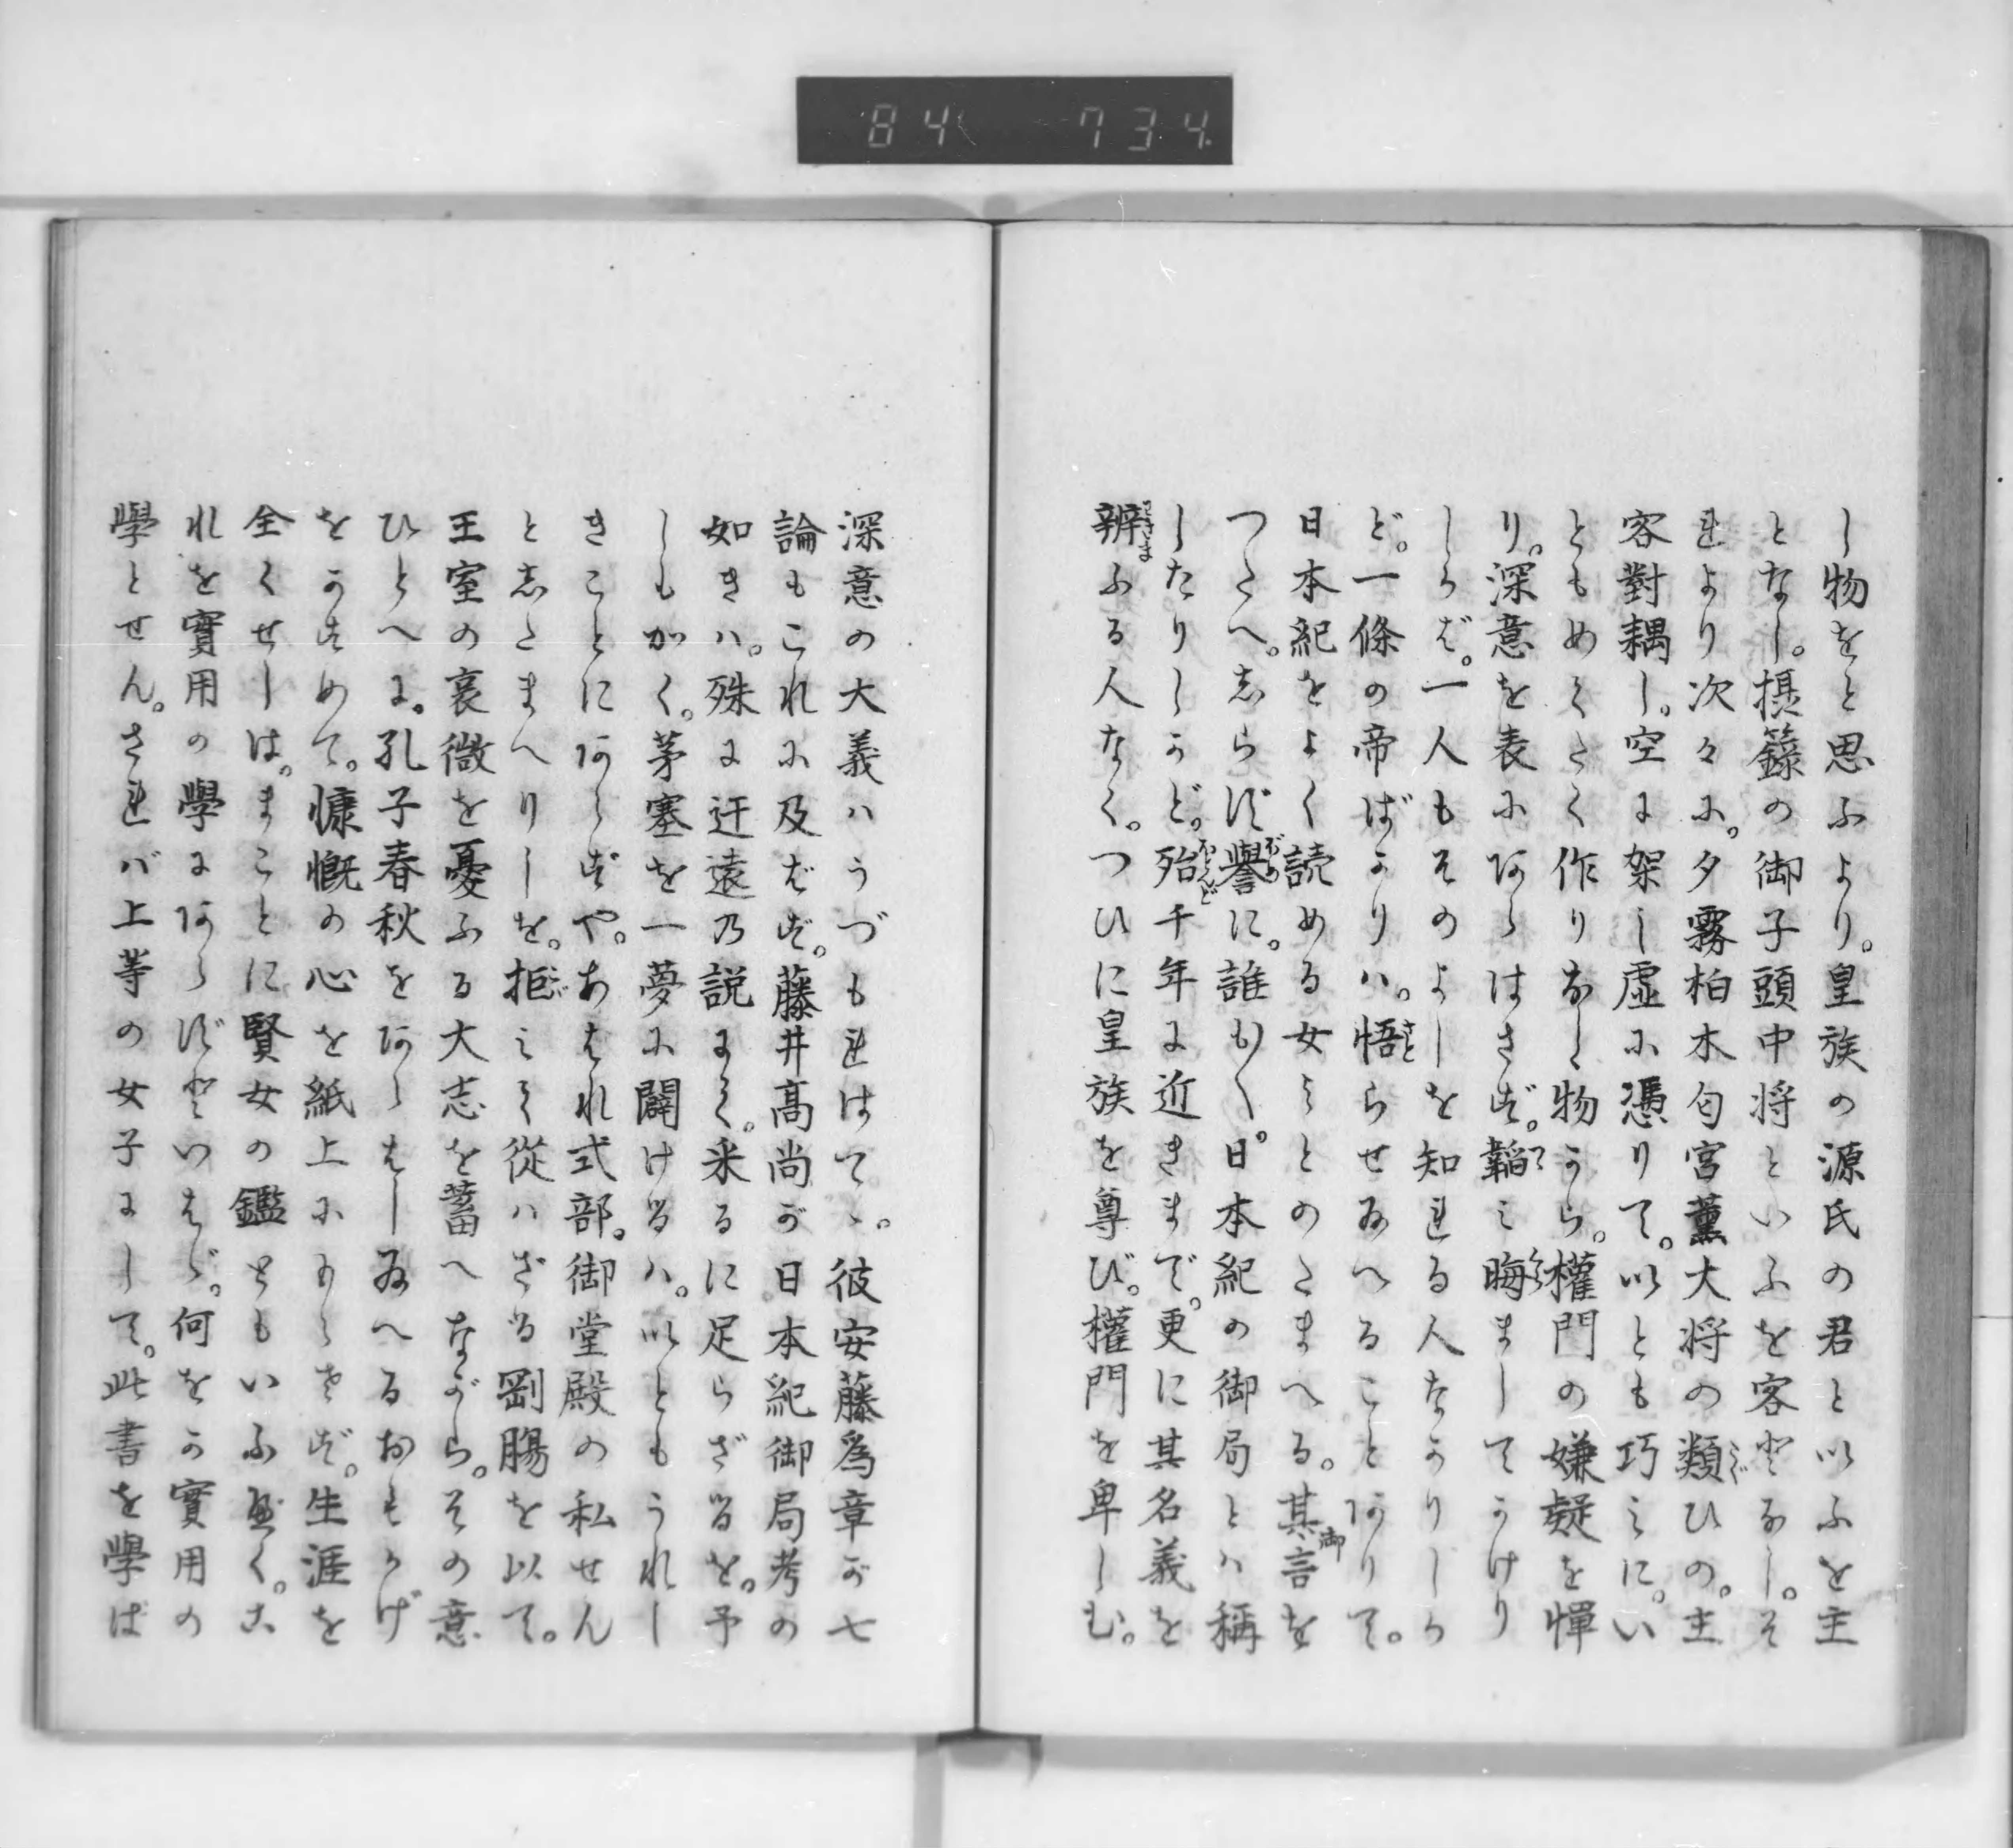 84 734
し物をと思ふより。皇族の源氏の君と以ふを主
となし。摂籙の御子頭中将といふを客となし。そ
れより次々に。夕霧柏木匂宮薫大将の類ひの。主
容對耦し。空に架し虚に憑りて。以とも巧みに。い
ともめてたく作りなし物から。權門の嫌疑を憚
り。深意を表にあらはさず。韜み晦ましてかけり
しかば。一人もそのよしを知れる人なかりしか
ど。一條の帝ばかりハ。悟らせ給へることありて。
日本紀をよく読める女ことのたまへる。其御言を
つたへ。志らず譽に。誰も〱。日本紀の御局とハ稱
したりしかど。殆千年に近きまで。更に其名義を
辨ふる人なく。つひに皇族を尊び。權門を卑しむ。
深意の大義ハうづもれはてゝ。彼安藤為章が七
論もこれに及ばず。藤井髙尚が日本紀御局考の
如きハ。殊に迂遠乃説にて。采るに足らざるを。予
しもかく。茅塞を一夢に闢けるハ。以ともうれし
きことにあらずや。あはれ式部。御堂殿の私せん
と志たまへりしを。拒みて從ハざる剛腸を以て。
王室の衰微を憂ふる大志を蓄へながら。その意
ひとへに。孔子春秋をあらはし給へるおもかげ
をかすめて。慷慨の心を紙上にもらさず。生涯を
全くせしは。まことに賢女の鑑ともいふ慭く。こ
れを實用の學にあらずといはゞ。何をか實用の
學とせん。されバ上等の女子にして。此書を學ば